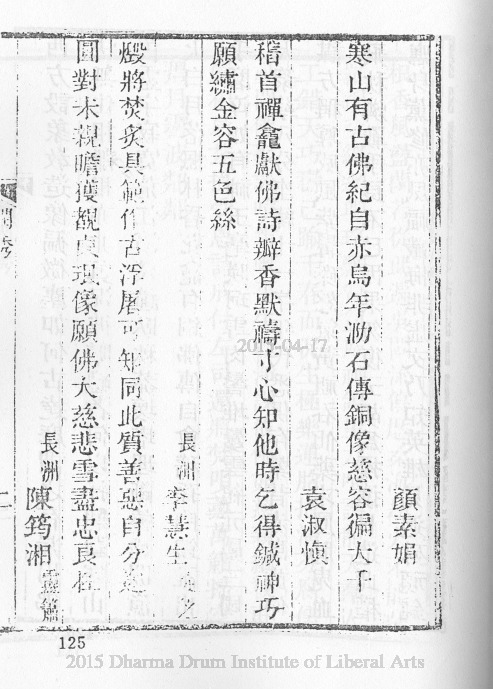 顏素娟
寒山有古佛紀自赤烏年泐石傳銅像慈容徧大千
袁淑慎
稽首禪龕獻佛詩瓣香默禱寸心知他時乞得鍼神巧
願繡金容五色絲
長洲 李慧生
煅將焚炙具範作古浮屠可知同此質善惡自分途
圓對未親瞻獲覩貞珉像願佛大慈悲雪盡忠良枉
長洲 陳筠湘 靈簫
閨秀
二
125
2015-04-17
2015 Dharma Drum Institute of Liberal Arts